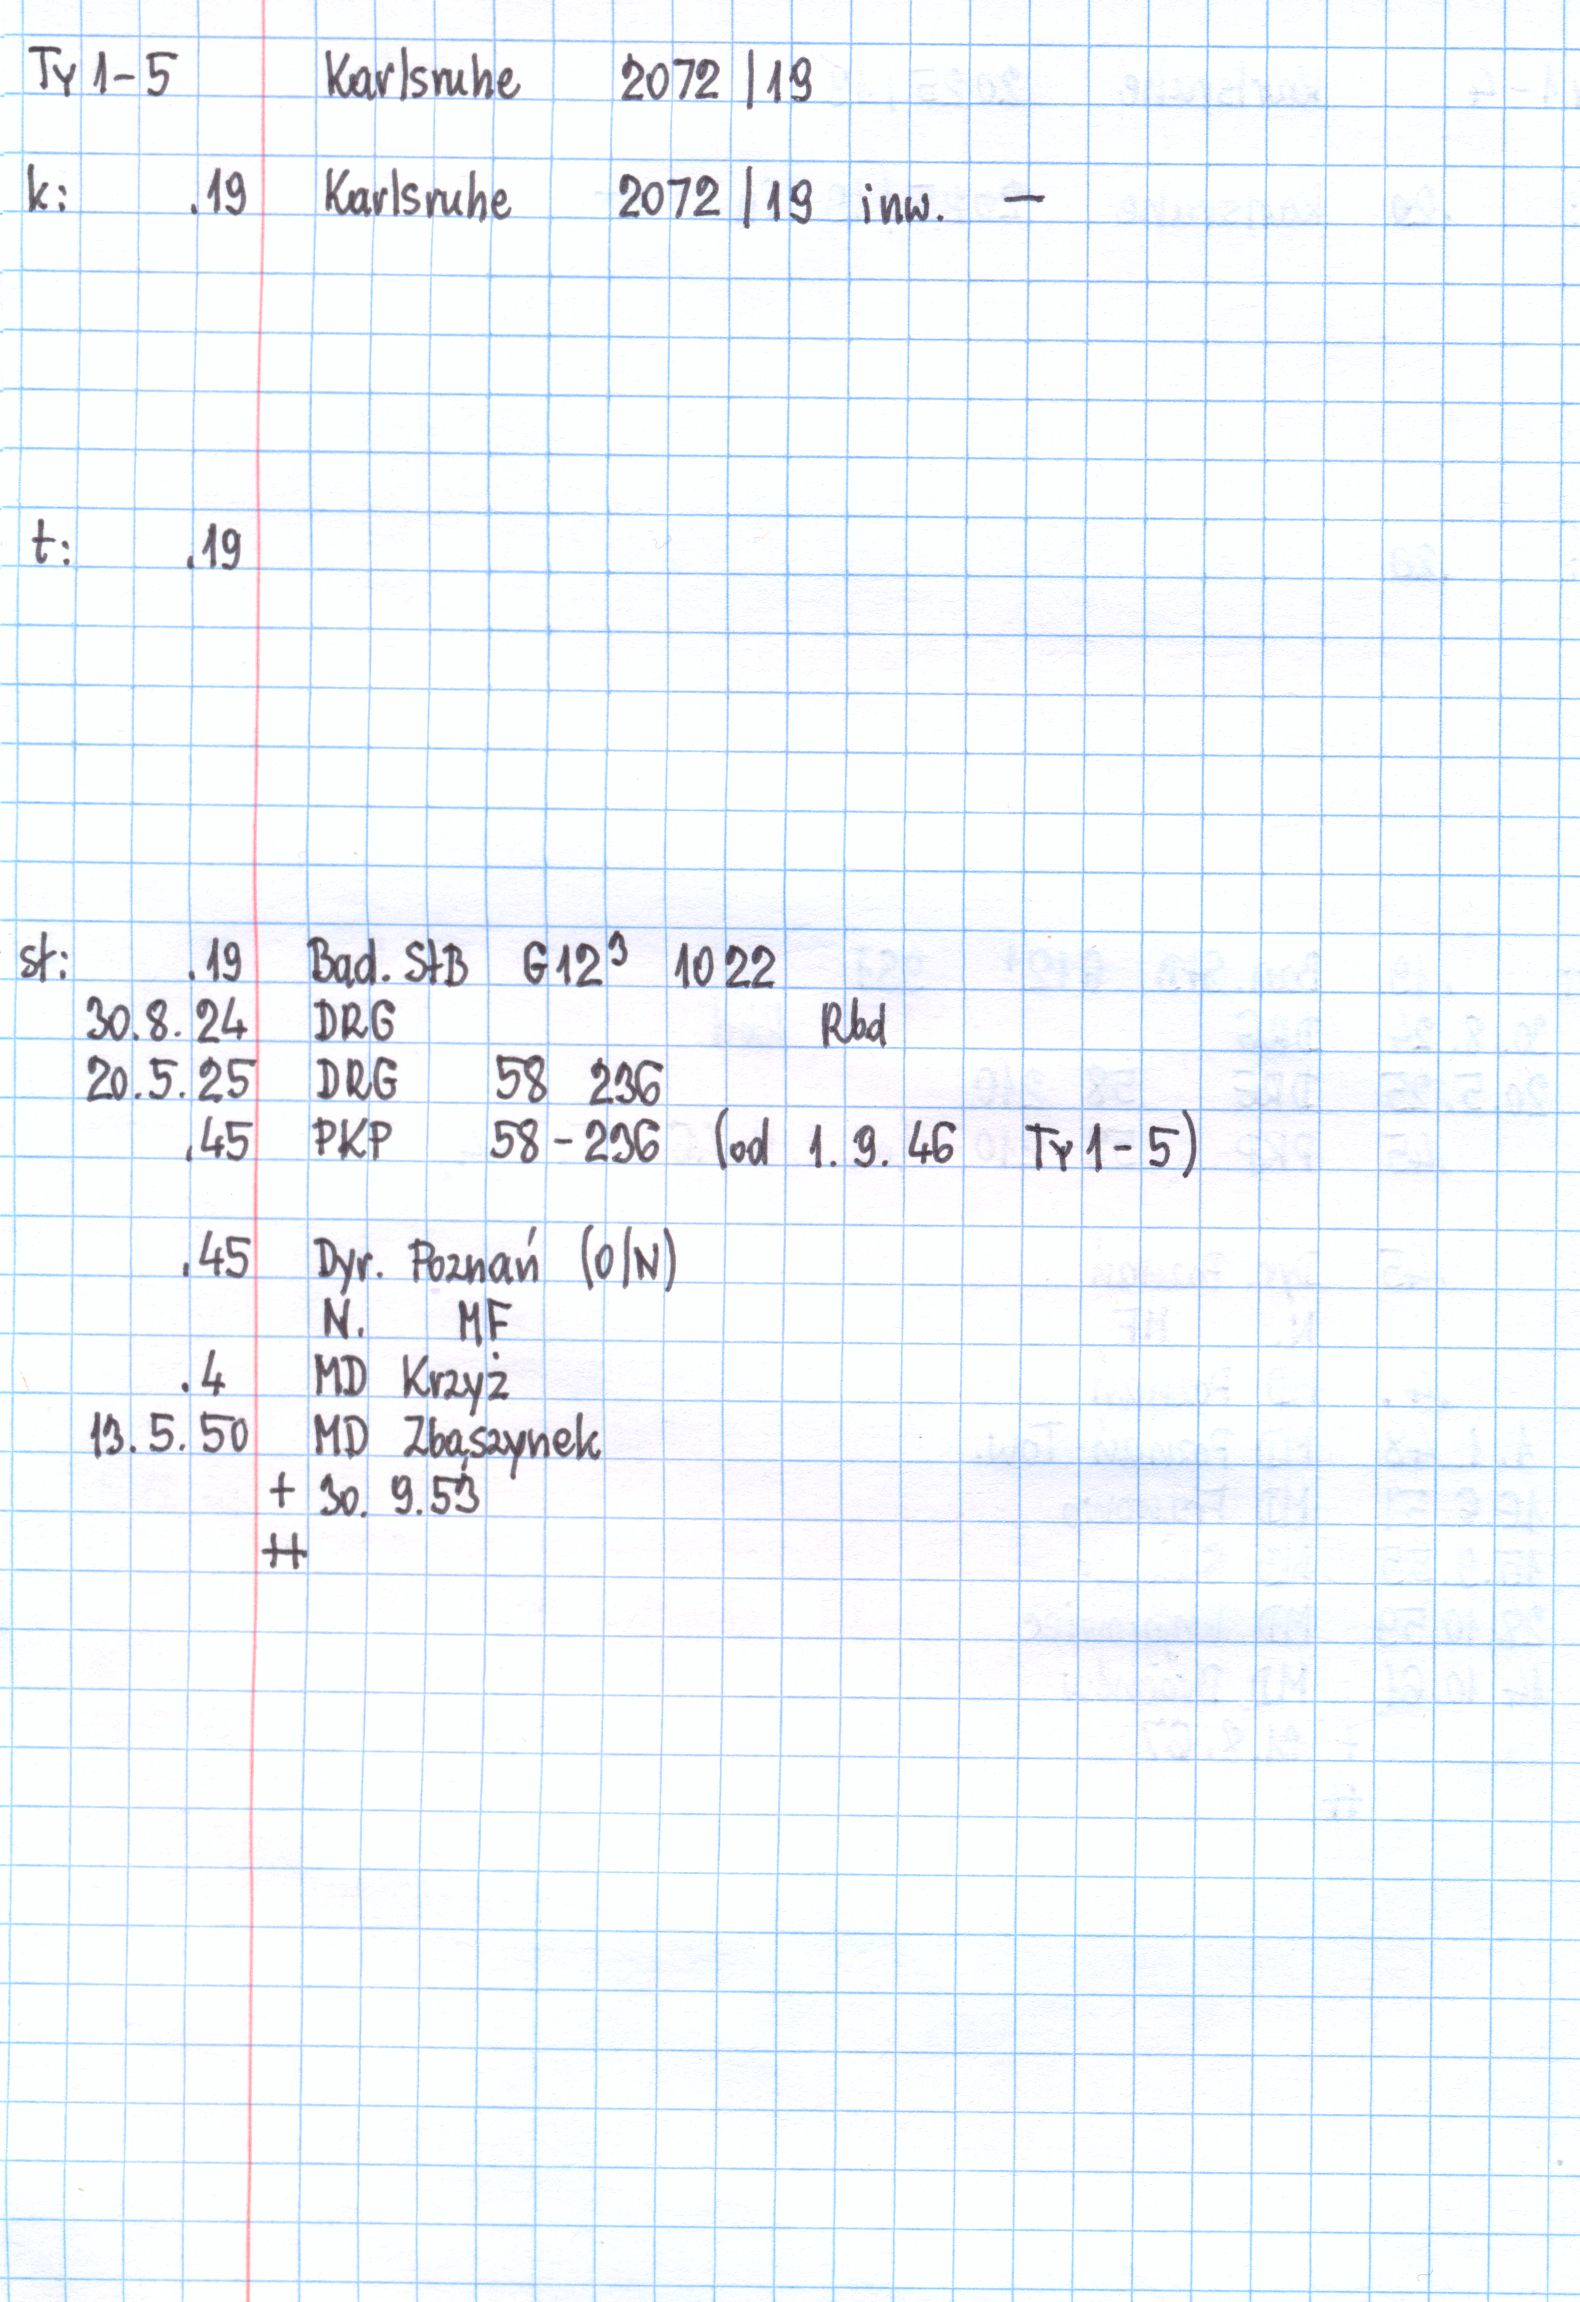 Ty 1-5 Karlsruhe 2072/19
k: .19 Karlsruhe 2072/19 inw. –
t: .19
st: .19 Bad. StB G12³ 1022
30.8.24 DRG Rbd
20.5.25 DRG 58 236
.45 PKP 58-236 (od 1.9.46 Ty 1-5)
.45 Dyr. Poznań (O/N)
N. MF
.4 MD Krzyż
13.5.50 MD Zbąszynek
+ 30.9.53
++